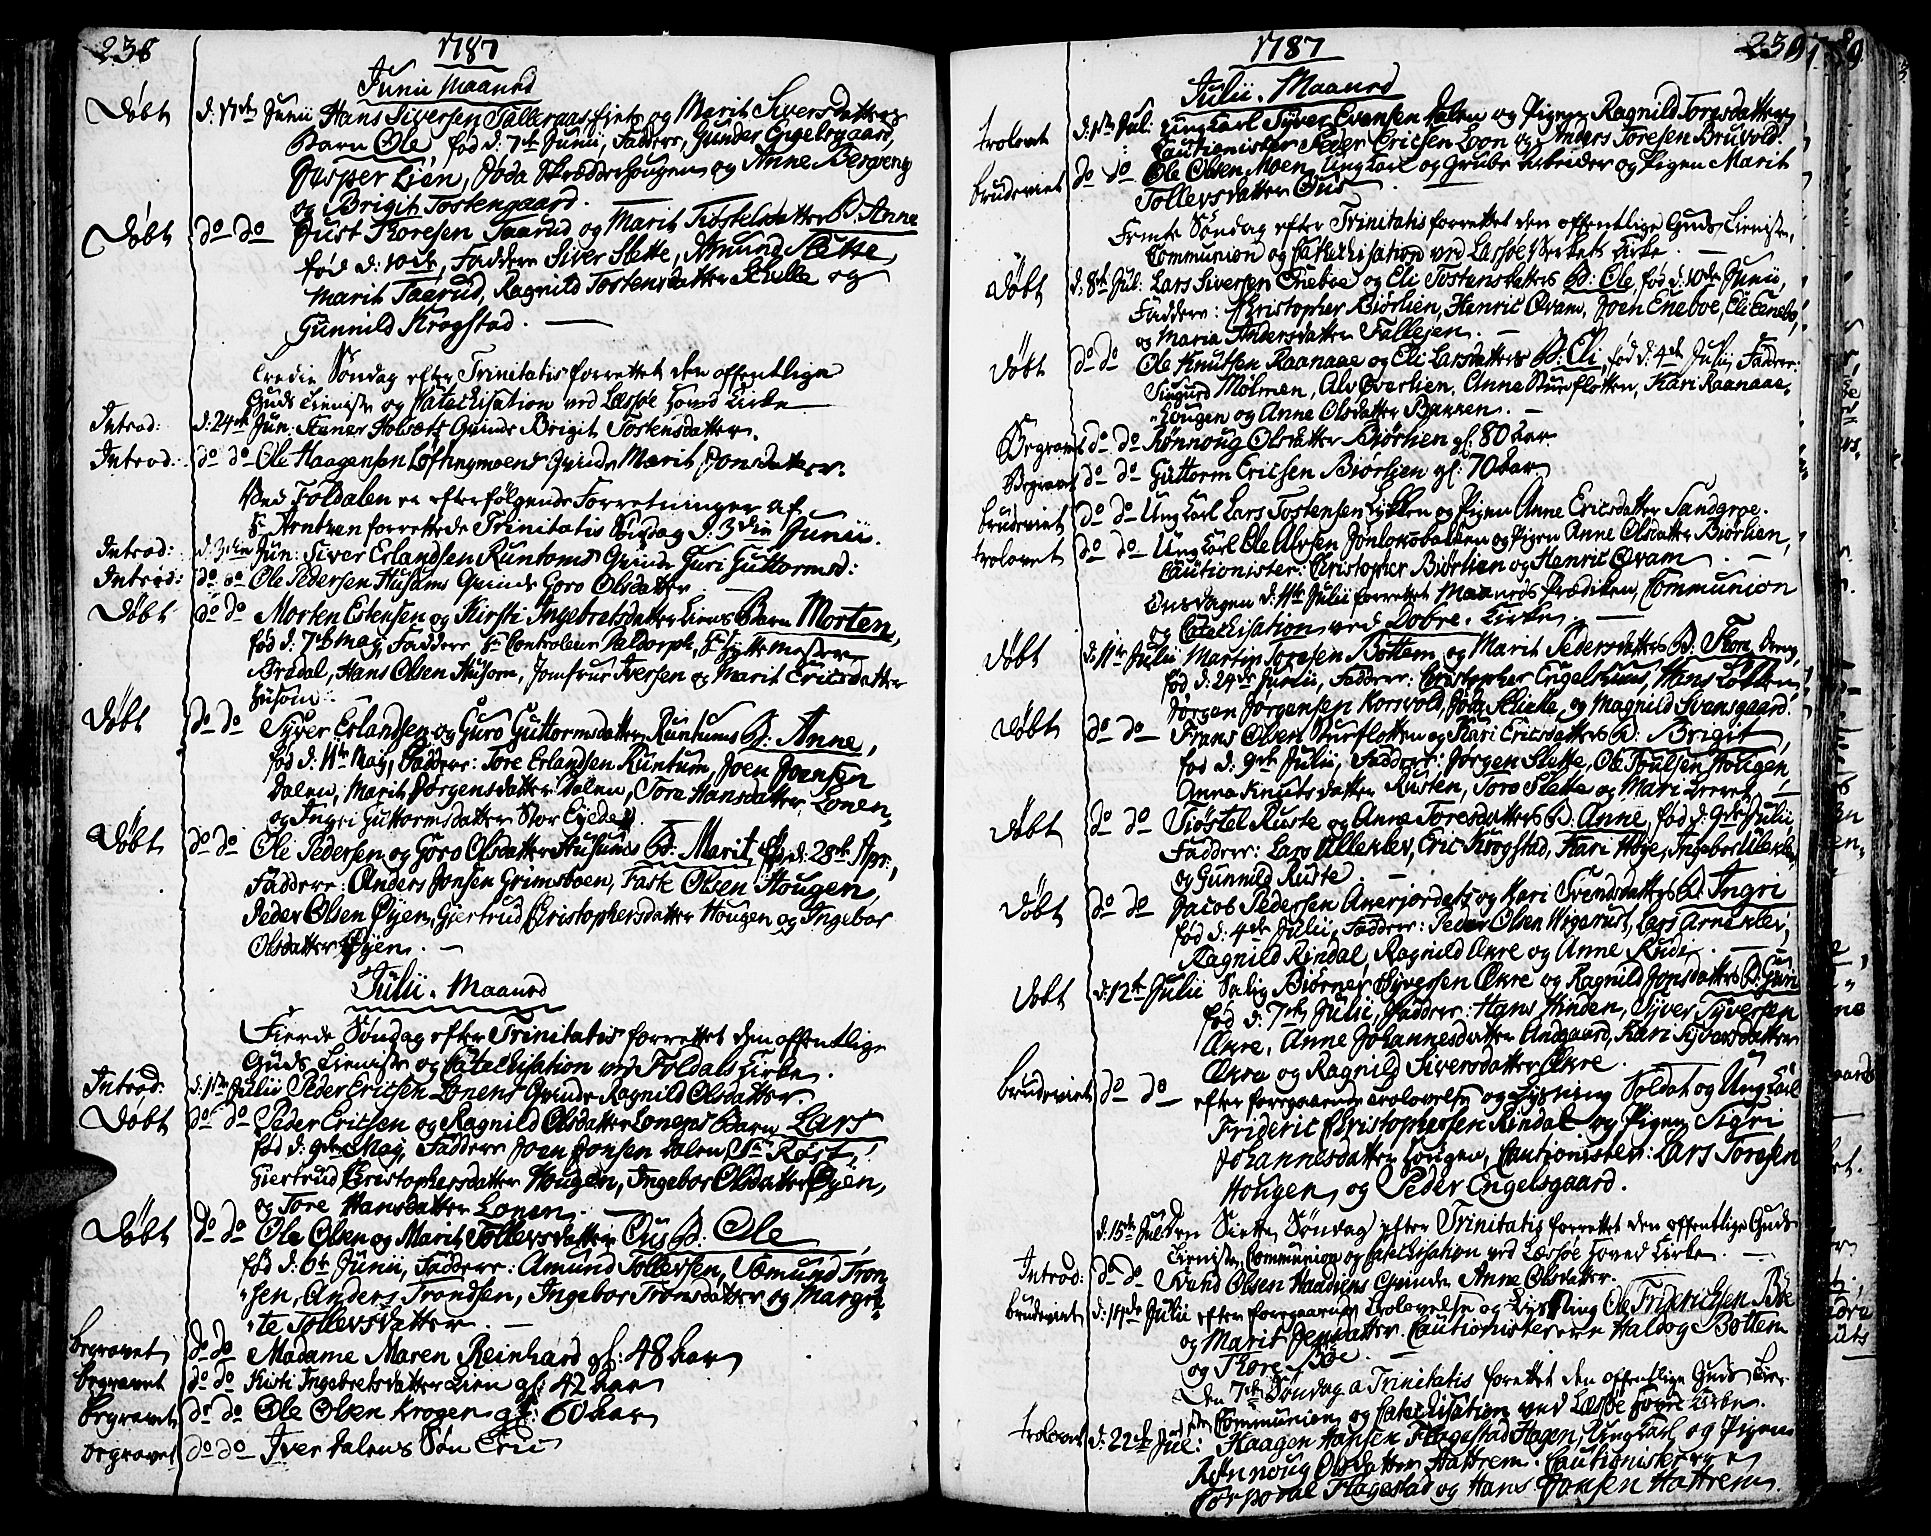 238
1787
Junii Maaned
Døbt d: 17de Junii Hans Siversen Talleraas og Marit Siversdatters
Barn Ole fød d: 7de Junii, Faddere, Gunder Engelsgaard,
Jesper Lien, Joda Skrædderhougen og Anne Bergseng
og Brigit Tostengaard.
Døbt do do Just Thoresen Taarud og Marit Tiøstelsdatters B. Anne
fød d: 10de, Faddere Siver Slette, Amund Slette,
Marit Taarud, Ragnild Tostensdatter Schelle og
Gunnild Krogstad. —
Tredie Søndag efter Trinitatis forrettet den offentlige
Guds Tieniste og Catechisation ved Læssøe Hoved Kirke
Introd: d: 24de Jun: Stener Holsets Qvinde Brigit Tostensdatter.
Introd: do do Ole Haagensen Løftingmoens Qvinde Marit Jonsdatter.
Ved Foldalen er efterfølgende Forretninger af
Hr Arntzen forrettede Trinitatis Søndag d. 3die Junii.
Introd: d. 3die Jun: Siver Erlandsen Runtoms Qvinde Guri Guttormsd:
Introd: do do Ole Pedersen Husums Qvinde Goro Olsdatter —
Døbt do do Morten Estensen og Kirsti Ingebretsdatter Liens Barn Morten,
fød d: 7de May, Faddere, Hr Controleur Paldorph, Hr Hyttemester
Brødal, Hans Olsen Husom, Jomfrue Iversen og Marit Ericsdatter
Husom.
Døbt do do Syver Erlandsen og Guro Guttormsdatter Runtums B: Anne,
fød d: 11te May, Faddere: Tore Erlandsen Runtum, Joen Joensen
Dalen, Marit Jørgensdatter Dalen, Tora Hansdatter Lonen,
og Ingri Guttormsdatter Stor Eyde.
Døbt do do Ole Pedersen og Goro Olsdatter Husums B: Marit, fød d: 28de Apr:,
Faddere: Anders Jonsen Grimsboen, Fast Olsen Hougen,
Peder Olsen Øyen, Giertrud Christophersdatter Hougen og Ingebor
Olsdatter Øyen. —
Julii Maaned
Fierde Søndag efter Trinitatis forrettet den offentlige
Guds Tieniste og Catechisation ved Foldals Kirke.
Introd: d: 1ste Julii Peder Ericsen Lonens Qvinde Ragnild Olsdatter.
Døbt do do Peder Ericsen og Ragnild Olsdatter Lonens Barn Lars
fød d: 9de May, Faddere Joen Jonsen Dalen, Sr Røst,
Giertrud Christophersdatter Hougen, Ingebor Olsdatter Øyen,
og Tore Hansdatter Lonen. —
Døbt do do Ole Olsen og Marit Tollevsdatter Ous B: Ole
fød d. 6te Junii, Faddere: Amund Tollevsen, Æmund Tron-
sen, Anders Trondsen, Ingebor Tronsdatter og Margre-
te Tollevsdatter. —
begravet do do Madame Maren Reinhard gl: 48 Aar
begravet do do Kisti Ingebretsdatter Lien gl: 42 Aar
begravet do do Ole Olsen Krogen gl: 60 Aar
begravet do do Iver Dalens Søn Eric
239
1787
Julii Maaned
trolovet d: 1ste Jul: Ung Karl Syver Evensen Dalen og Pigen Ragnild Toresdatter
Cautionister Peder Ericsen Loon og Anders Toresen Bruvold.
brudeviet do do Ole Olsen Moen, Ung Karl og Grube Arbeider og Pigen Marit
Tollevsdatter Ous
Femte Søndag efter Trinitatis forrettet den offentlige Guds Tieniste,
Communion og Catechisation ved Læssøe Verkets Kirke
Døbt d: 8de Jul: Lars Siversen Eneboe og Eli Tostensdatters B: Ole, fød d: 10de Junii,
Faddere: Christopher Biørlien, Hanric Qvam, Joen Eneboe, Eli Enebo,
og Maria Andersdatter Fallesen. —
Døbt do do Ole Knutsen Raanaae og Eli Larsdatters B: Eli, fød d: 4de Julii, Faddere:
Siugurd Molmen, Alv Øverlien, Anne Sturflotten, Kari Raanaae-
Hougen og Anne Olsdatter Bakken. —
Begravet do do Rønnoug Olsdatter Biørlien gl. 80 Aar
Begravet do do Guttorm Ericsen Biørlien gl: 70 Aar
brudeviet do do Ung Karl Lars Tostensen Lykken og Pigen Anne Ericsdatter Sandgroe.
trolovet do do Ung Karl Ole Alvsen Jonlonsbakken og Pigen Anne Olsdatter Biørlien,
Cautionister: Christopher Biørlien og Henric Qvam
Onsdagen d: 11te Julii forrettet Maaneds Prædiken, Communion
og Catechisation ved Dobre Kirke. —
Døbt d: 11te Julii Martin Toresen Bottem og Marit Pedersdatters B: Thore, dreng,
fød d. 24de Junii, Faddere: Christopher Engelshuus, Hans Lotten,
Jørgen Jørgensen Korsvold, Joda Slette, og Magnild Svansgaard.
Døbt do do Frans Olsen Sturflotten og Kari Ericsdatters B: Brigit,
fød d: 9de Julii, Faddere: Jørgen Slette, Ole Poulsen Hougen,
Anna Knutsdatter Rusten, Toro Slette og Mari
Døbt do do Tiøstel Ruste og Anne Toresdatters B: Anne, fød d: 9de Julii,
Faddere: Lars Ulleklev, Eric Krogstad, Kari Hage, Ingebor Ulleklev
og Gunnild Ruste.
Døbt do do Jacob Pedersen Anerjordets og Kari Svendsdatters B. Ingri
fød d: 4de Julii, Faddere: Peder Olsen Wigerust, Lars Arneklev,
Ragnild Rindal, Ragnild Økre og Anne Rudi. —
Døbt d: 12te Julii Salig Biørner Syversen Økre og Ragnild Jonsdatters B: Guri
fød d: 7de Julii, Faddere: Hans Hinden, Syver Syversen
Økre, Anne Johannesdatter Andgaard, Kari Syversdatter
Økre og Ragnild Siversdatter Økre.
brudeviet do do efter foregaaende Trolovelse og Lysning Soldat og Ung Karl
Frideric Christophersen Rindal og Pigen Sigri
Johannesdatter Hougen, Cautionister: Lars Toresen
Hougen, og Peder Engelsgaard.
d: 15de Jul: den Siette Søndag efter Trinitatis forrettet den offentlige Guds
Tieniste, Communion og Catechisation ved Læssøe Hoved Kirke. —
Introd: do do Svend Olsen Haagens Qvinde Anne Olsdatter.
brudeviet d: 17de Julii efter foregaaende Trolovelse og Lysning Ole Friderichsen Bøe
og Marit Jensdatter. Cautionister ere Haldog Bottem
og Thore Bøe. —
Den 7de Søndag a Trinitatis forrettet den offentlige Guds Tie-
niste, Communion og Catechisation ved Læssøe Kirke.
trolovet d: 22de Jul: Haagen Hansen Flagestad Hagen, Ung Karl og Pigen
Rønnoug Olsdatter Hattrem. Cautionister ere
Corporal Flagestad og Hans Jonsen Hattrem.